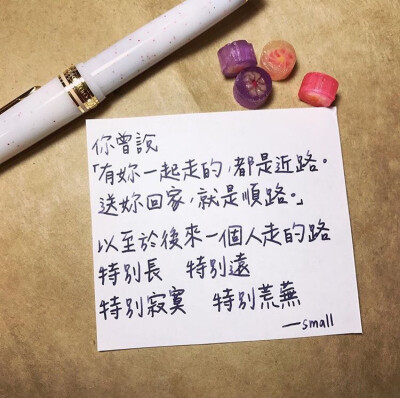 你曾說
「有妳一起走的，都是近路。
送妳回家，就是順路。」
以至於後來一個人走的路
特別長 特別遠
特別寂寞 特別荒蕪
—small